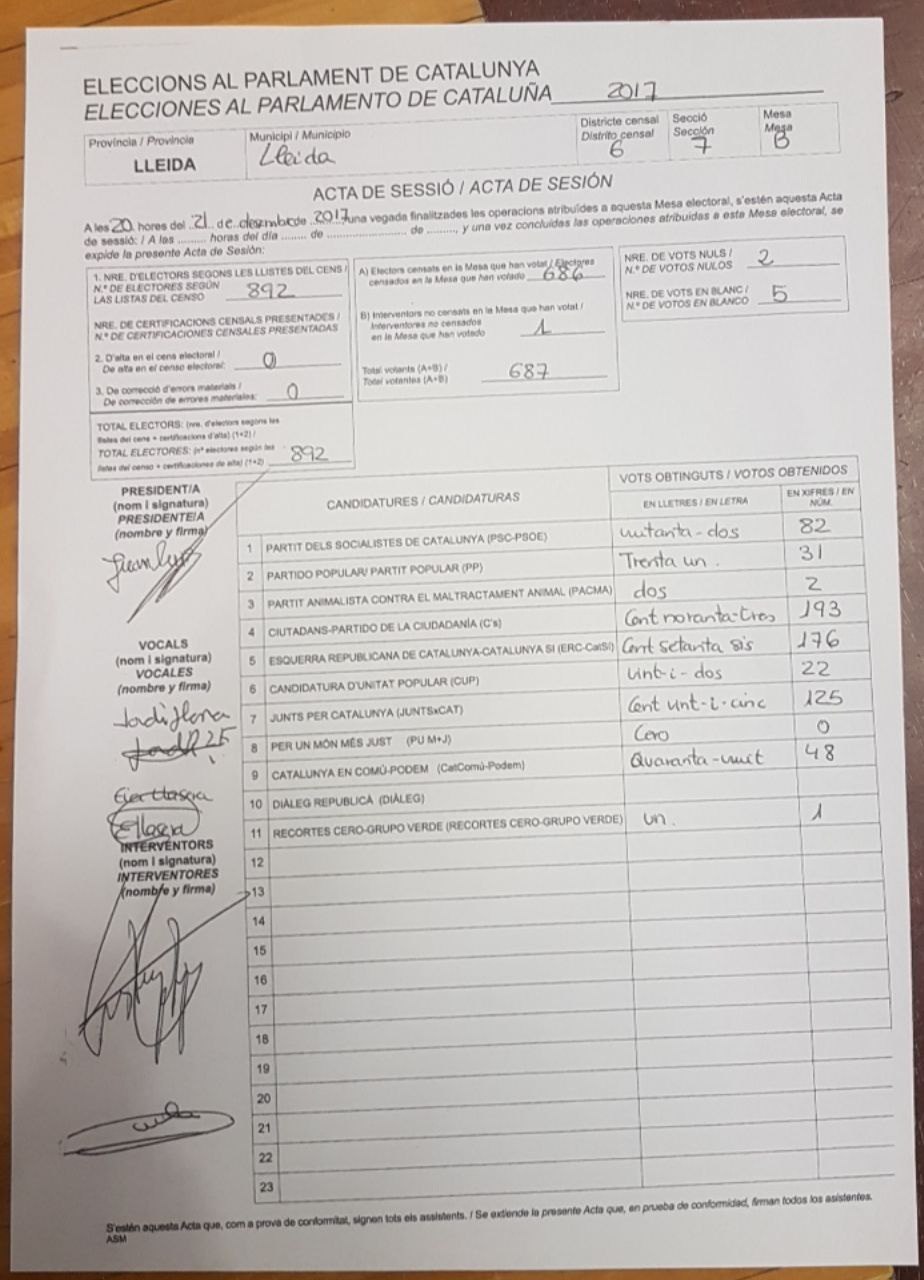 ELECCIONS AL PARLAMENT DE CATALUNYA
ELECCIONES AL PARLAMENTO DE CATALUÑA 2017
Província / Provincia
LLEIDA
Municipi / Municipio
Lleida
Districte censal
Distrito censal
6
Secció
Sección
7
Mesa
Mesa
B
ACTA DE SESSIÓ / ACTA DE SESIÓN
A les 20 hores del 21 de desembre de 2017, una vegada finalitzades les operacions atribuïdes a aquesta Mesa electoral, s'estén aquesta Acta
de sessió: / A las ......... horas del día ........ de ........................ de ........, y una vez concluidas las operaciones atribuidas a esta Mesa electoral, se
expide la presente Acta de Sesión:
1. NRE. D'ELECTORS SEGONS LES LLISTES DEL CENS /
N.º DE ELECTORES SEGÚN
LAS LISTAS DEL CENSO 892
NRE. DE CERTIFICACIONS CENSALS PRESENTADES /
N.º DE CERTIFICACIONES CENSALES PRESENTADAS
2. D'alta en el cens electoral /
De alta en el censo electoral: 0
3. De correcció d'errors materials /
De corrección de errores materiales: 0
TOTAL ELECTORS: (nre. d'electors segons les
llistes del cens + certificacions d'alta) (1+2) /
TOTAL ELECTORES: (nº electores según las
listas del censo + certificaciones de alta) (1+2) 892
A) Electors censats en la Mesa que han votat / Electores
censados en la Mesa que han votado 686
B) Interventors no censats en la Mesa que han votat /
Interventores no censados
en la Mesa que han votado 1
Total votants (A+B) /
Total votantes (A+B) 687
NRE. DE VOTS NULS /
N.º DE VOTOS NULOS 2
NRE. DE VOTS EN BLANC /
N.º DE VOTOS EN BLANCO 5
PRESIDENT/A
(nom i signatura)
PRESIDENTE/A
(nombre y firma)
VOCALS
(nom i signatura)
VOCALES
(nombre y firma)
INTERVENTORS
(nom i signatura)
INTERVENTORES
(nombre y firma)
CANDIDATURES / CANDIDATURAS
VOTS OBTINGUTS / VOTOS OBTENIDOS
EN LLETRES / EN LETRA
EN XIFRES / EN NÚM.
1 PARTIT DELS SOCIALISTES DE CATALUNYA (PSC-PSOE) vuitanta-dos 82
2 PARTIDO POPULAR/ PARTIT POPULAR (PP) Trenta un. 31
3 PARTIT ANIMALISTA CONTRA EL MALTRACTAMENT ANIMAL (PACMA) dos 2
4 CIUTADANS-PARTIDO DE LA CIUDADANÍA (C's) Cent noranta-tres 193
5 ESQUERRA REPUBLICANA DE CATALUNYA-CATALUNYA SI (ERC-CatSí) Cent setanta sis 176
6 CANDIDATURA D'UNITAT POPULAR (CUP) vint-i-dos 22
7 JUNTS PER CATALUNYA (JUNTSxCAT) Cent vint-i-cinc 125
8 PER UN MÓN MÉS JUST (PU M+J) Cero 0
9 CATALUNYA EN COMÚ-PODEM (CatComú-Podem) Quaranta-vuit 48
10 DIÀLEG REPUBLICÀ (DIÀLEG)
11 RECORTES CERO-GRUPO VERDE (RECORTES CERO-GRUPO VERDE) un. 1
12
13
14
15
16
17
18
19
20
21
22
23
S'estén aquesta Acta que, com a prova de conformitat, signen tots els assistents. / Se extiende la presente Acta que, en prueba de conformidad, firman todos los asistentes.
ASM